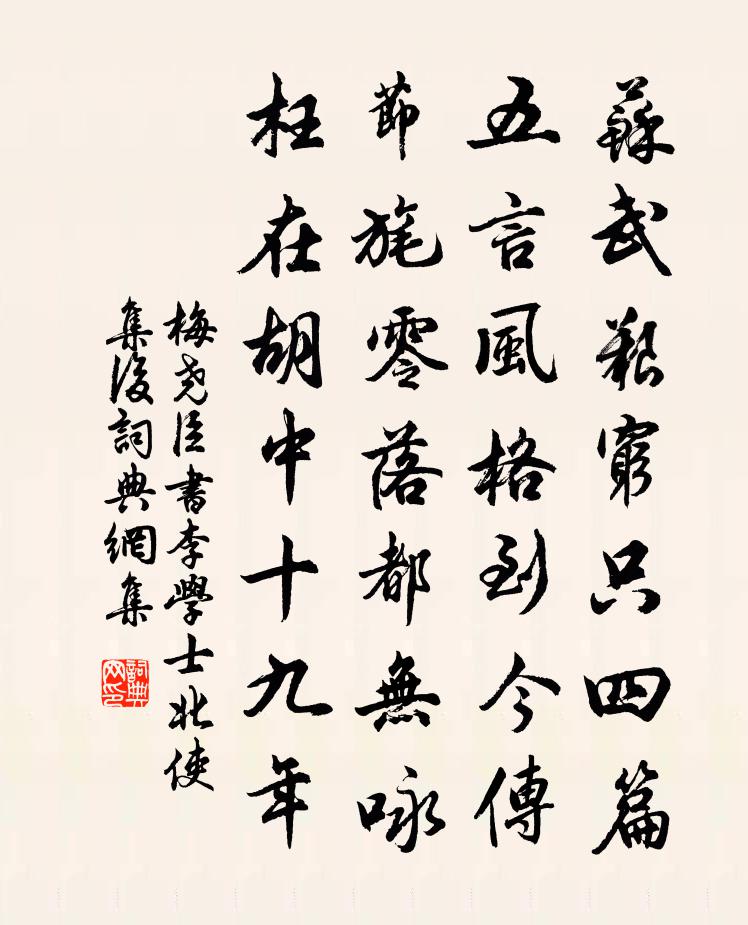 蘇武艱窮只四篇
五言風格到今傳
節旄零落都無咏
枉在胡中十九年
梅堯臣書李學士北使
集後詞典網集
詞典网印